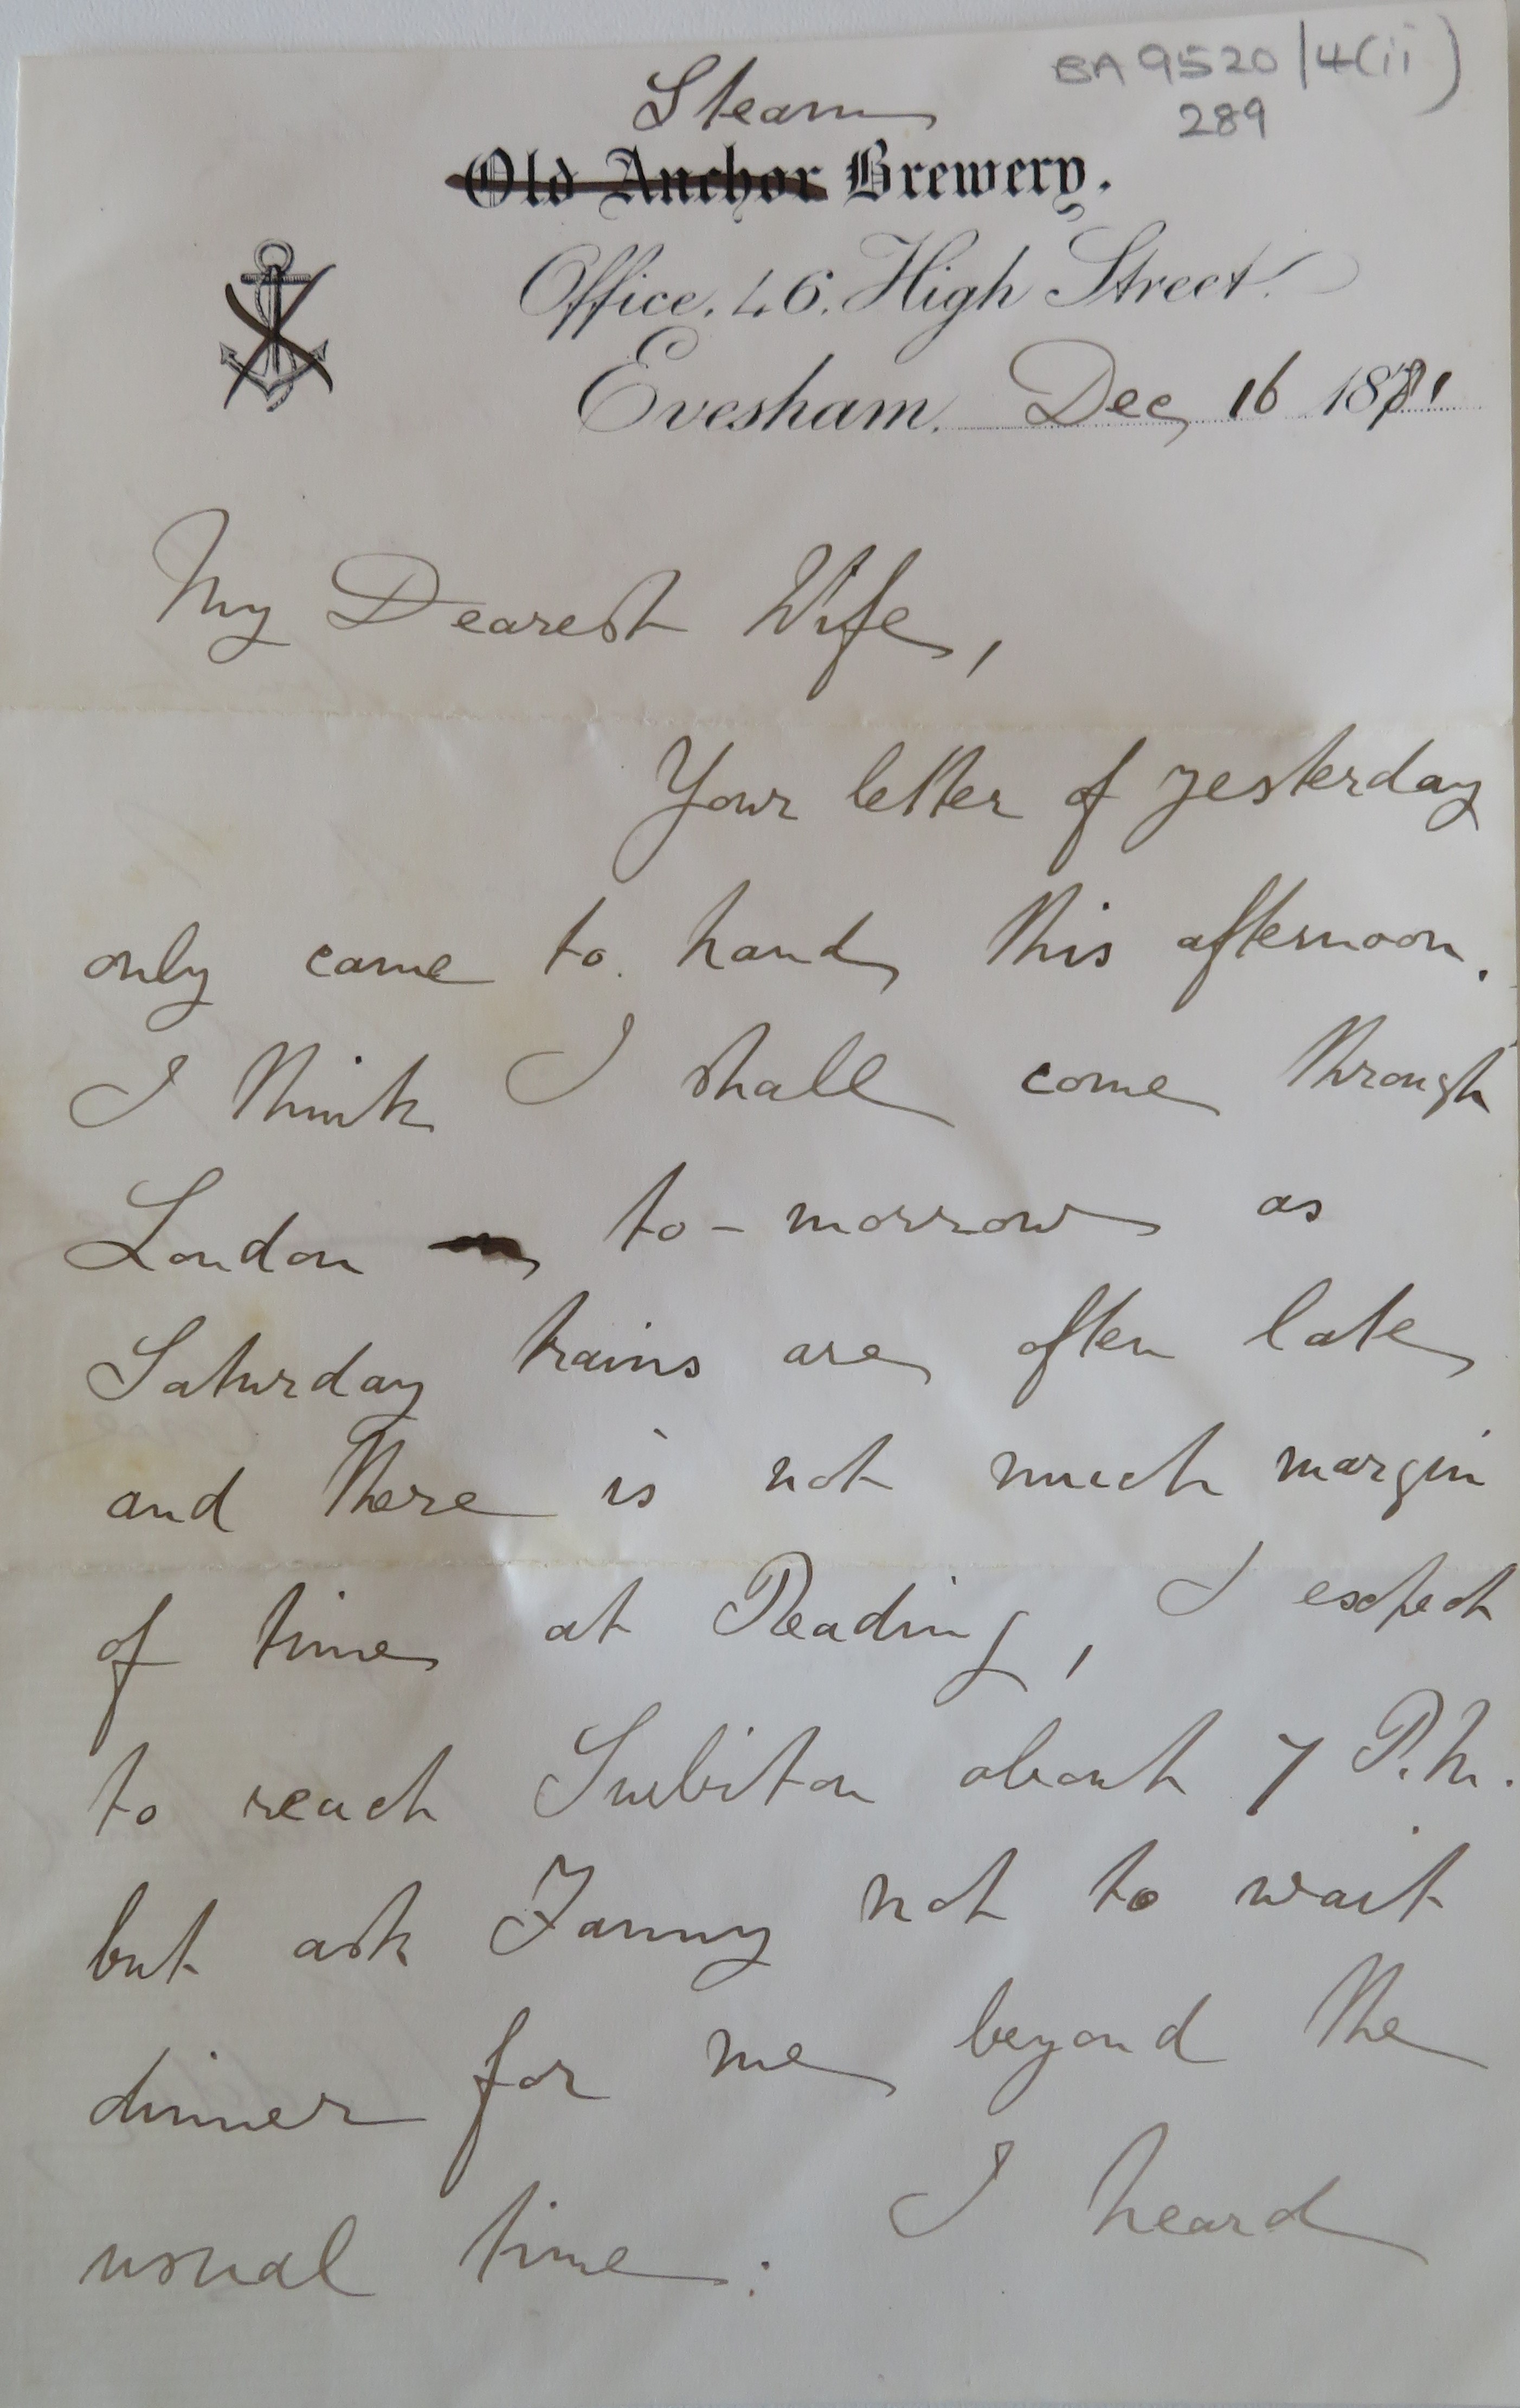 BA 9520/4(ii)
289
Steam
Old Anchor Brewery.
Office, 46, High Street.
Evesham, Dec 16 1881
My Dearest Wife,
Your letter of yesterday
only came to hand this afternoon.
I think I shall come through
London to-morrow as
Saturday trains are often late
and there is not much margin
of time at Reading, I expect
to reach Surbiton about 7 P.M.
but ask Fanny not to wait
dinner for me beyond the
usual time. I heard